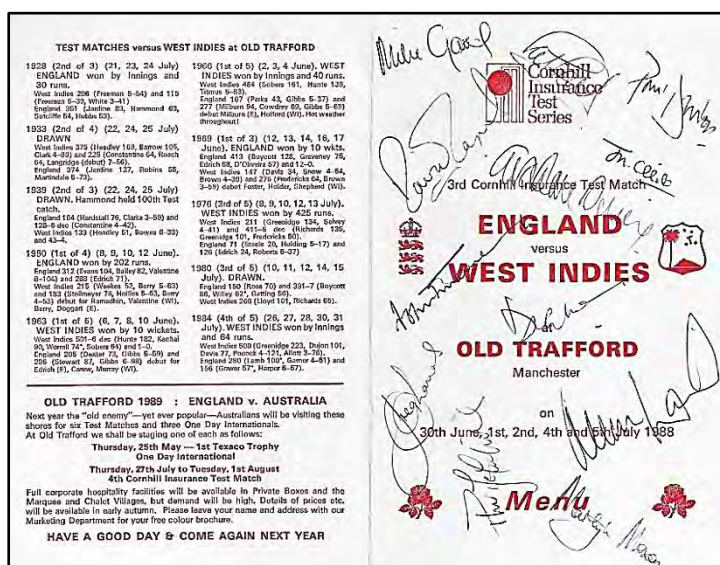 TEST MATCHES versus WEST INDIES at OLD TRAFFORD
1928 (2nd of 3) (21, 23, 24 July)
ENGLAND won by Innings and
30 runs.
West Indies 206 (Freeman 5–54) and 115
(Freeman 5–39, White 3–41)
England 351 (Jardine 83, Hammond 63,
Sutcliffe 54, Hobbs 53).
1933 (2nd of 4) (22, 24, 25 July)
DRAWN
West Indies 375 (Headley 169, Barrow 105,
Clark 4–99) and 225 (Constantine 64, Roach
64, Langridge (debut) 7–56).
England 374 (Jardine 127, Robins 55,
Martindale 5–73).
1939 (2nd of 3) (22, 24, 25 July)
DRAWN. Hammond held 100th Test
catch.
England 164 (Hardstaff 76, Clarke 3–59) and
128–6 dec (Constantine 4–42).
West Indies 133 (Headley 51, Bowes 6–33)
and 43–4.
1950 (1st of 4) (8, 9, 10, 12 June)
ENGLAND won by 202 runs.
England 312 (Evans 104, Bailey 82, Valentine
8–104) and 288 (Edrich 71).
West Indies 215 (Weekes 52, Berry 5–63)
and 183 (Stollmeyer 78, Hollies 5–63, Berry
4–53) debut for Ramadhin, Valentine (WI),
Berry, Doggart (E).
1963 (1st of 5) (6, 7, 8, 10 June).
WEST INDIES won by 10 wickets.
West Indies 501–6 dec (Hunte 182, Kanhai
90, Worrell 74*, Sobers 64) and 1–0.
England 205 (Dexter 73, Gibbs 5–59) and
296 (Stewart 87, Gibbs 6–98) debut for
Edrich (E), Carew, Murray (WI).
1966 (1st of 5) (2, 3, 4 June). WEST
INDIES won by Innings and 40 runs.
West Indies 484 (Sobers 161, Hunte 135,
Titmus 5–83).
England 167 (Parks 43, Gibbs 5–37) and
277 (Milburn 94, Cowdrey 69, Gibbs 5–69)
debut Milburn (E), Holford (WI). Hot weather
throughout!
1969 (1st of 3) (12, 13, 14, 16, 17
June). ENGLAND won by 10 wkts.
England 413 (Boycott 128, Graveney 75,
Edrich 58, D'Oliveira 57) and 12–0.
West Indies 147 (Davis 34, Snow 4–54,
Brown 4–39) and 275 (Fredericks 64, Brown
3–59) debut Foster, Holder, Shepherd (WI).
1976 (3rd of 5) (8, 9, 10, 12, 13 July).
WEST INDIES won by 425 runs.
West Indies 211 (Greenidge 134, Selvey
4–41) and 411–5 dec (Richards 135,
Greenidge 101, Fredericks 50).
England 71 (Steele 20, Holding 5–17) and
126 (Edrich 24, Roberts 6–37)
1980 (3rd of 5) (10, 11, 12, 14, 15
July). DRAWN.
England 150 (Rose 70) and 391–7 (Boycott
86, Willey 62*, Gatting 56).
West Indies 260 (Lloyd 101, Richards 65).
1984 (4th of 5) (26, 27, 28, 30, 31
July). WEST INDIES won by Innings
and 64 runs.
West Indies 500 (Greenidge 223, Dujon 101,
Davis 77, Pocock 4–121, Allott 3–76).
England 280 (Lamb 100*, Garner 4–51) and
156 (Gower 57*, Harper 6–57).
OLD TRAFFORD 1989 : ENGLAND v. AUSTRALIA
Next year the "old enemy"—yet ever popular—Australians will be visiting these
shores for six Test Matches and three One Day Internationals.
At Old Trafford we shall be staging one of each as follows:
Thursday, 25th May — 1st Texaco Trophy
One Day International
Thursday, 27th July to Tuesday, 1st August
4th Cornhill Insurance Test Match
Full corporate hospitality facilities will be available in Private Boxes and the
Marquee and Chalet Villages, but demand will be high. Details of prices etc.
will be available in early autumn. Please leave your name and address with our
Marketing Department for your free colour brochure.
HAVE A GOOD DAY & COME AGAIN NEXT YEAR
Cornhill
Insurance
Test
Series
3rd Cornhill Insurance Test Match
ENGLAND
versus
WEST INDIES
OLD TRAFFORD
Manchester
on
30th June, 1st, 2nd, 4th and 5th July 1988
Menu